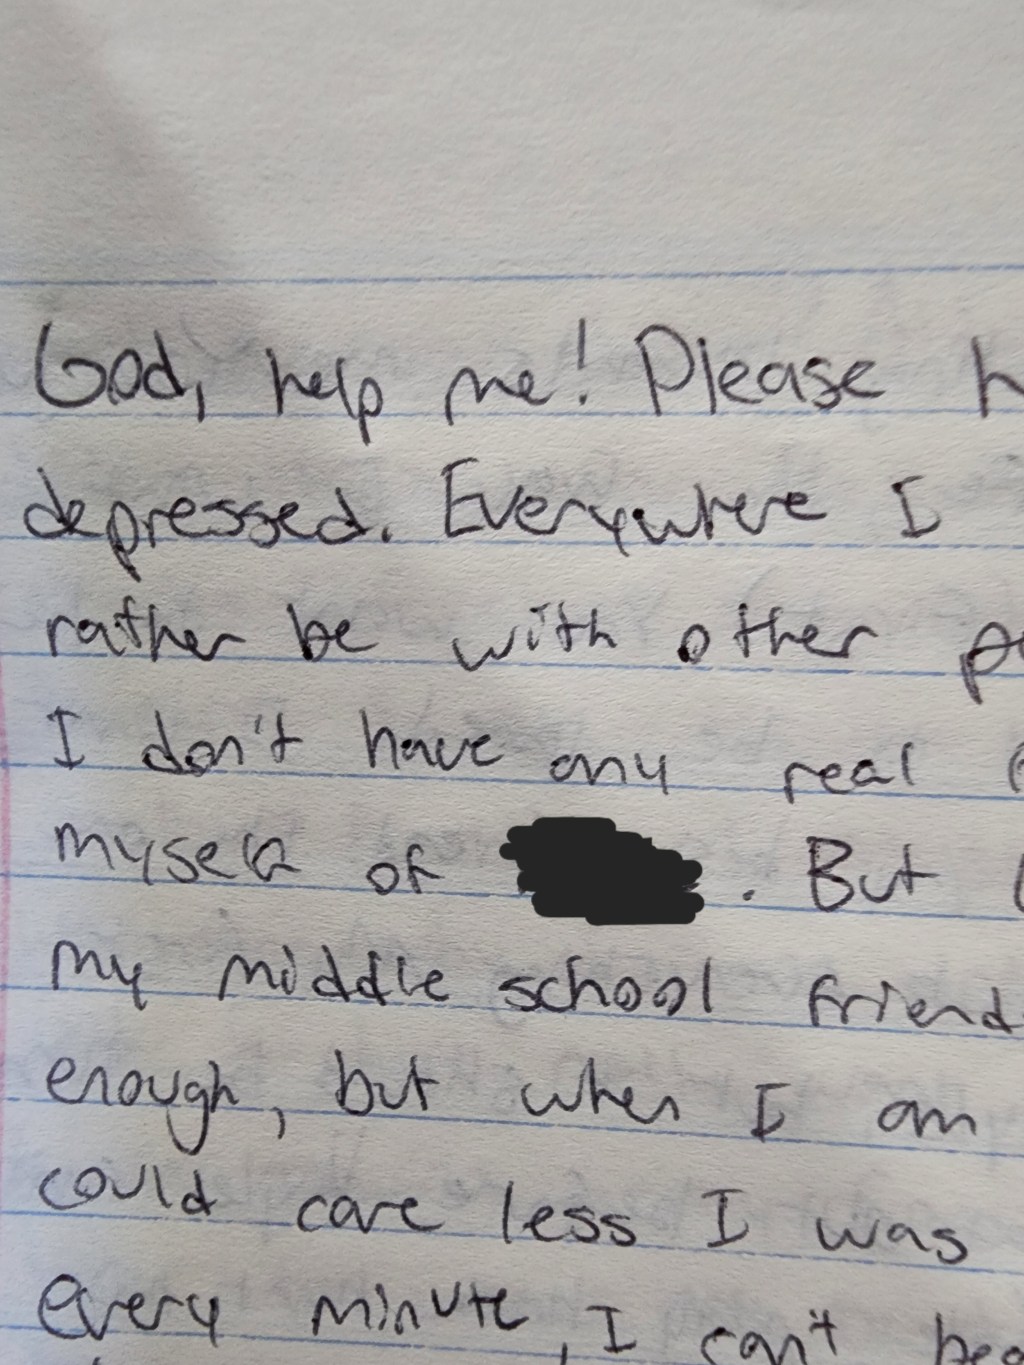 God, help me! Please h
depressed. Everywhere I
rather be with other p
I don't have any real
myself of . But
my middle school friends
enough, but when I am
could care less I was
every minute, I can't bea